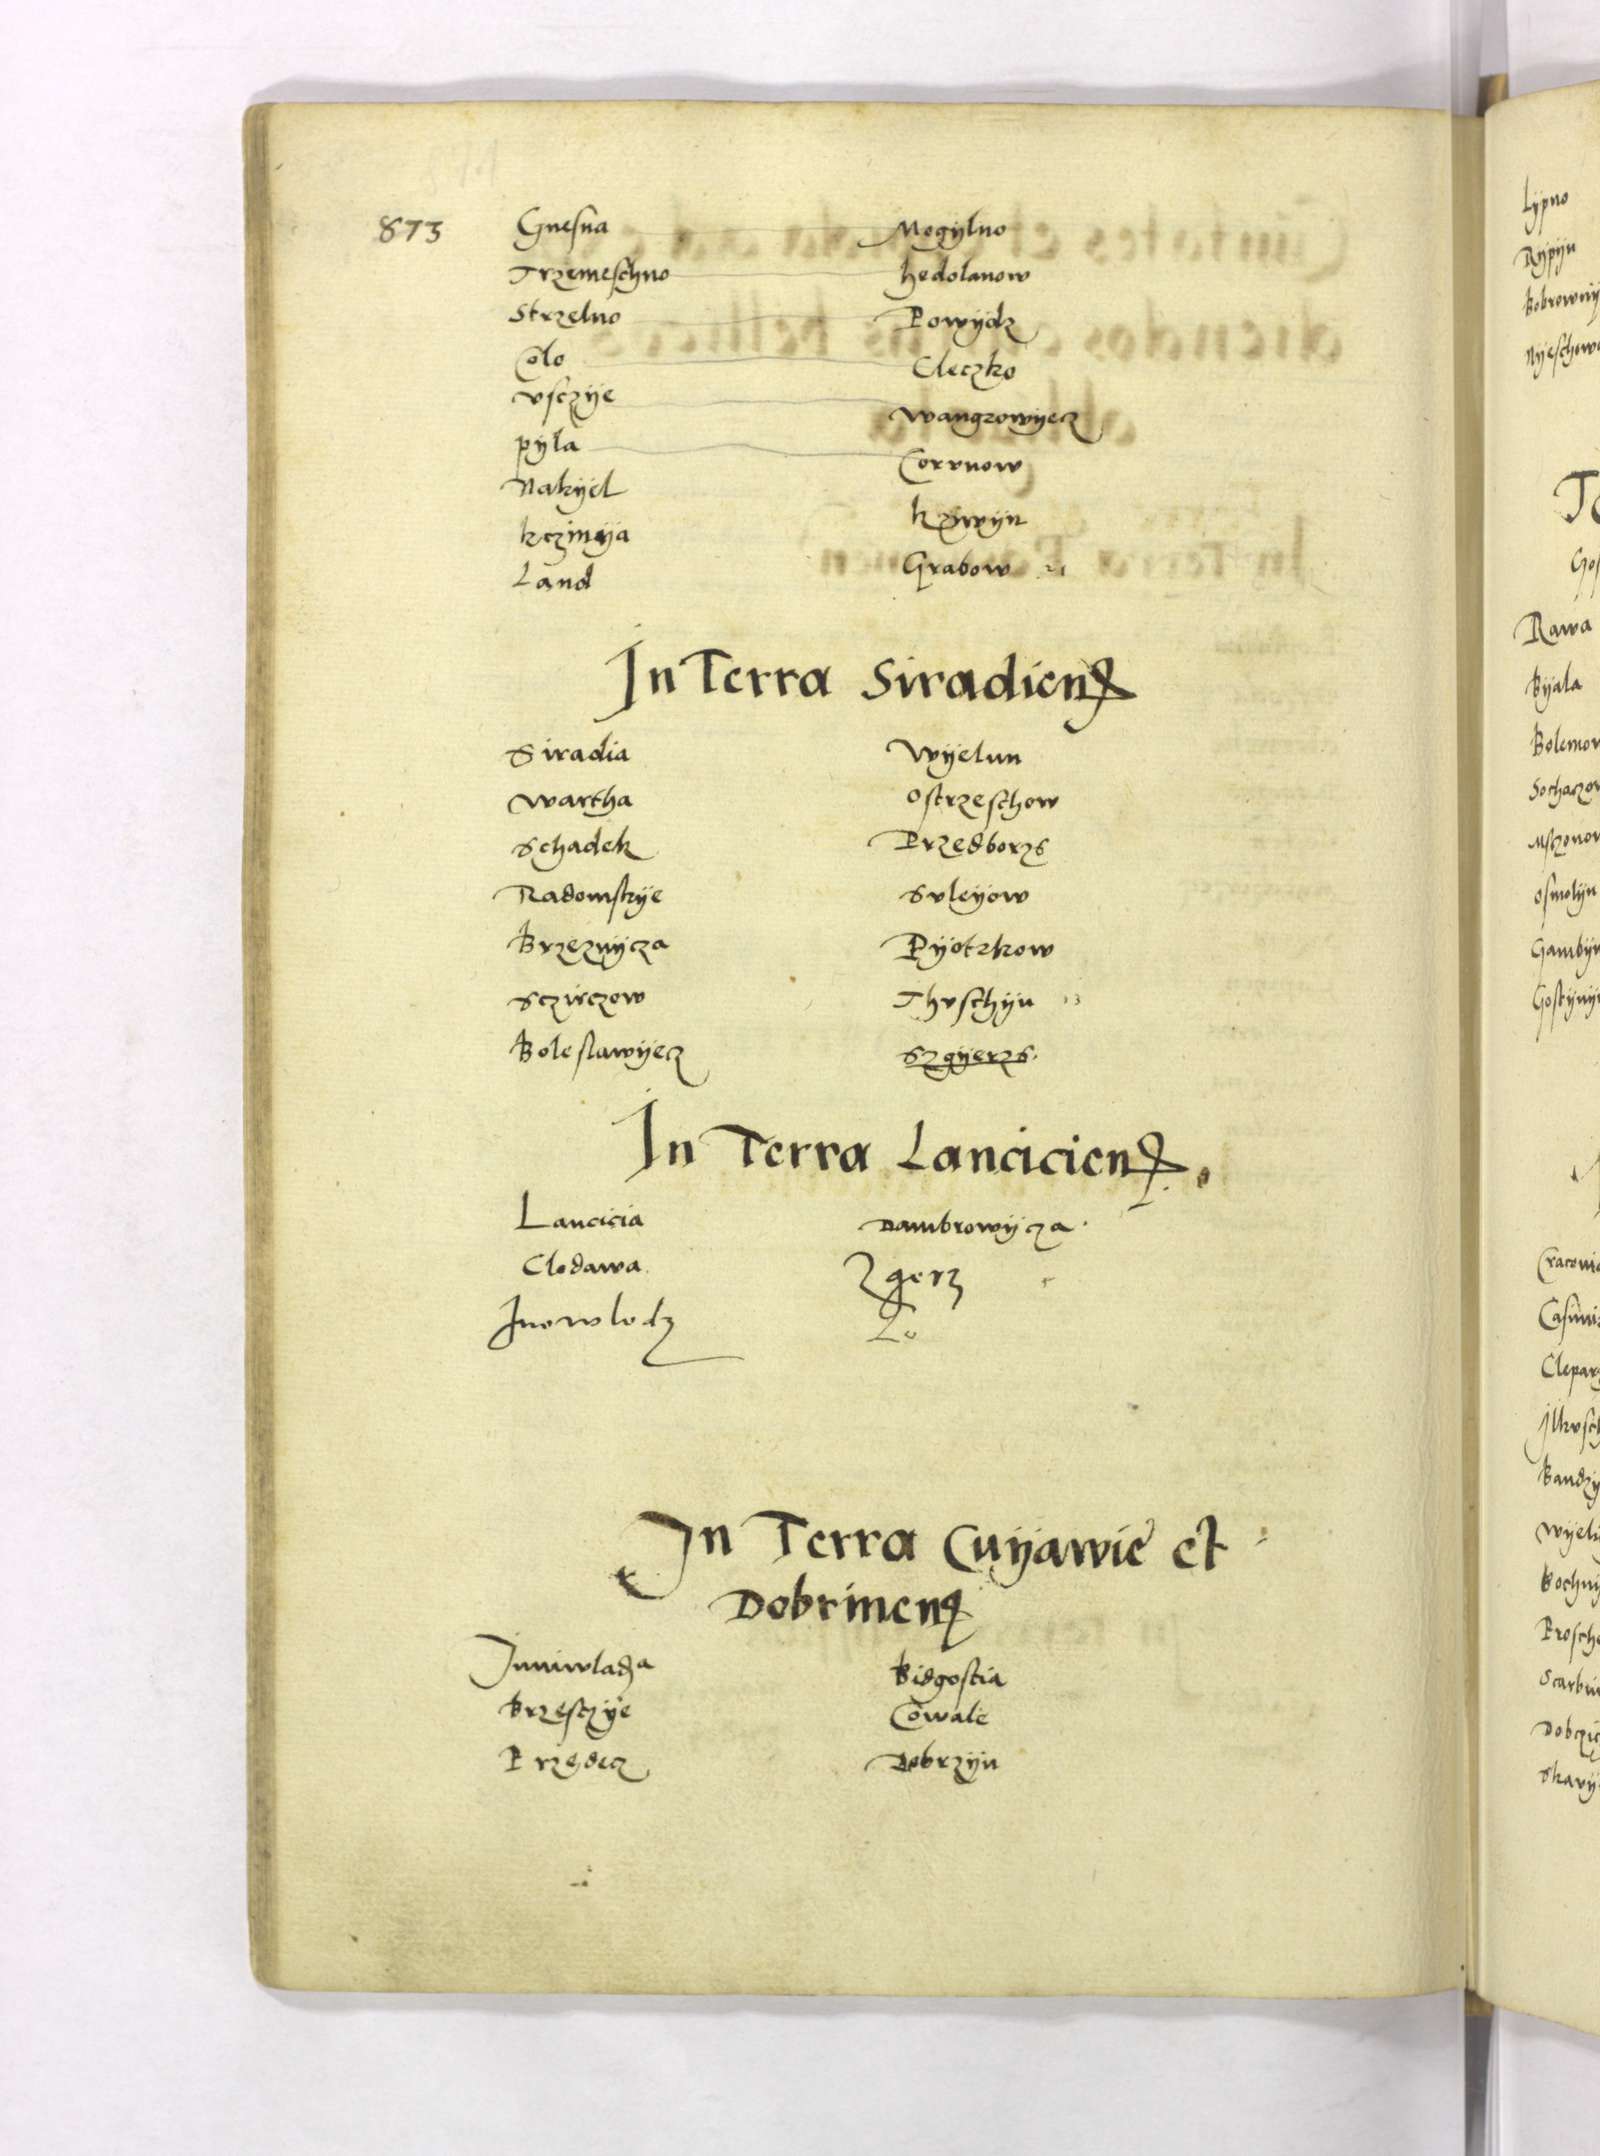 873 Gnesna Mogylno
Trzemeschno hedolanow
Strzelno Powydz
Colo Cleczko
vsczye wangrowyecz
pyla Corvnow
Nakyel krzywyn
kczinya Grabow
Land
In Terra Siradien
Siradia Wyelun
wartha ostrzeschow
Schadek Przedborzs
Radomskye Svleyow
Brzeznycza Pyotrkow
Sczirczow Thvschyn 13
Boleslawyecz Szgyerzs
In Terra Lancicien
Lancicia Dambrowycza
Clodawa Zgerz
Inowlodz Lo
In Terra Cuyawie et
Dobrinen
Iuniwladza Bidgostia
Brzesczye Cowale
Przedecz Dobrzyn
Lypno
Rypyn
Bobrowny
Nyeschow
Rawa
Byala
Bolemow
Sochaczow
Msczonow
Osmolyn
Gambyn
Gostyny
Cracovia
Casimi
Clepar
Ilkvsch
Bandzy
Wyeli
Bochny
Prosch
Scarbi
Dobczic
Skavy